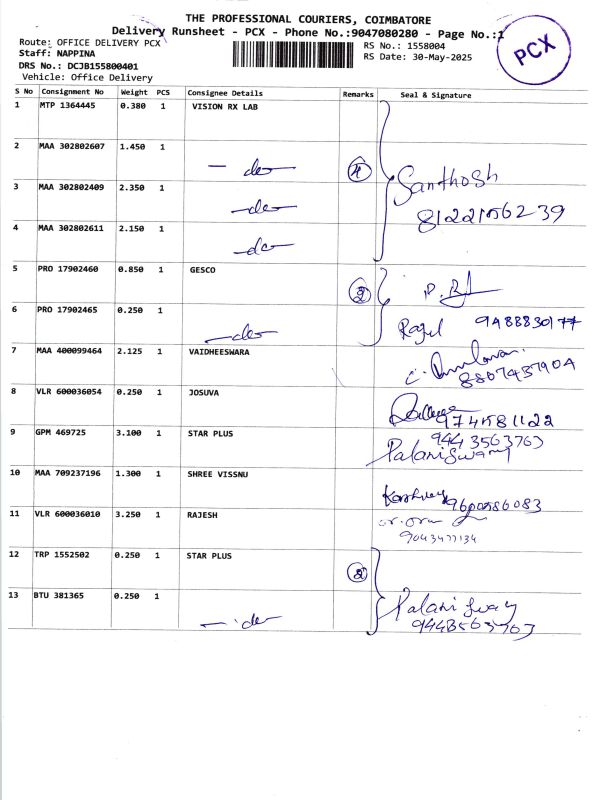 THE PROFESSIONAL COURIERS, COIMBATORE
Delivery Runsheet - PCX - Phone No.:9047080280 - Page No.:1
Route: OFFICE DELIVERY PCX
Staff: NAPPINA
RS No.: 1558004
RS Date: 30-May-2025
PCX
DRS No.: DCJB155800401
Vehicle: Office Delivery
S No Consignment No Weight PCS Consignee Details Remarks Seal & Signature
1 MTP 1364445 0.380 1 VISION RX LAB
2 MAA 302802607 1.450 1 — do — 4
Santhosh
3 MAA 302802409 2.350 1 — do —
8122156239
4 MAA 302802611 2.150 1 — do —
5 PRO 17902460 0.850 1 GESCO 2
6 PRO 17902465 0.250 1 — do —
9488830177
7 MAA 400099464 2.125 1 VAIDHEESWARA
8807437904
8 VLR 600036054 0.250 1 JOSUVA
9741581122
9 GPM 469725 3.100 1 STAR PLUS
9443563763
Palaniswamy
10 MAA 709237196 1.300 1 SHREE VISSNU
11 VLR 600036010 3.250 1 RAJESH
12 TRP 1552502 0.250 1 STAR PLUS 2
13 BTU 381365 0.250 1 — do —
Palaniswamy
9443563763